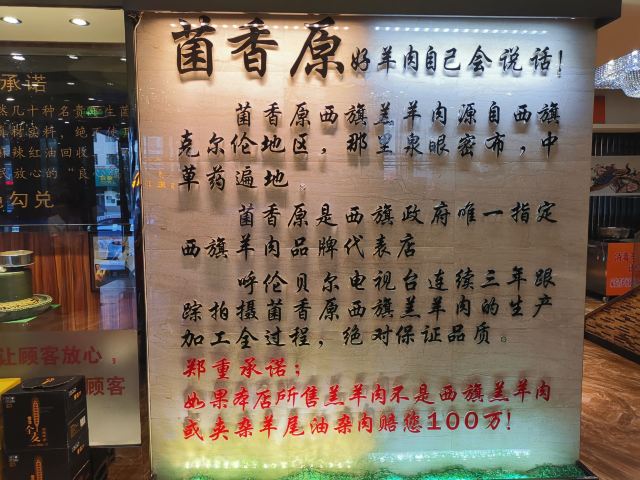 菌香原 好羊肉自己会说话!
菌香原西旗羔羊肉源自西旗
克尔伦地区，那里泉眼密布，中
草药遍地。
菌香原是西旗政府唯一指定
西旗羊肉品牌代表店
呼伦贝尔电视台连续三年跟
踪拍摄菌香原西旗羔羊肉的生产
加工全过程，绝对保证品质。
郑重承诺：
如果本店所售羔羊肉不是西旗羔羊肉
或夹杂羊尾油杂肉赔您100万!
承诺
几十种名贵
辣红油回收
民放心的“良
勾兑
让顾客放心，
顾客